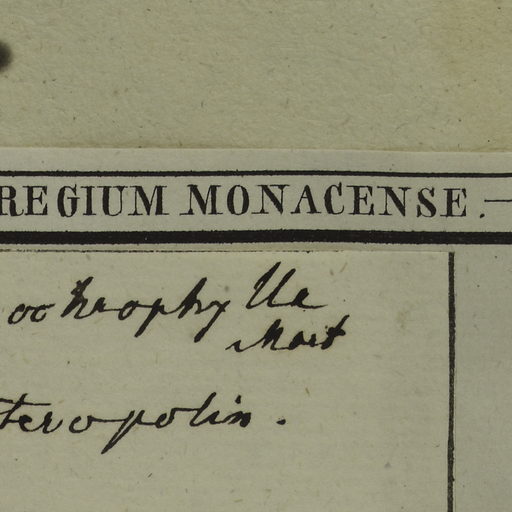 REGIUM MONACENSE.—
oochrophylla
Mart
teropolin.